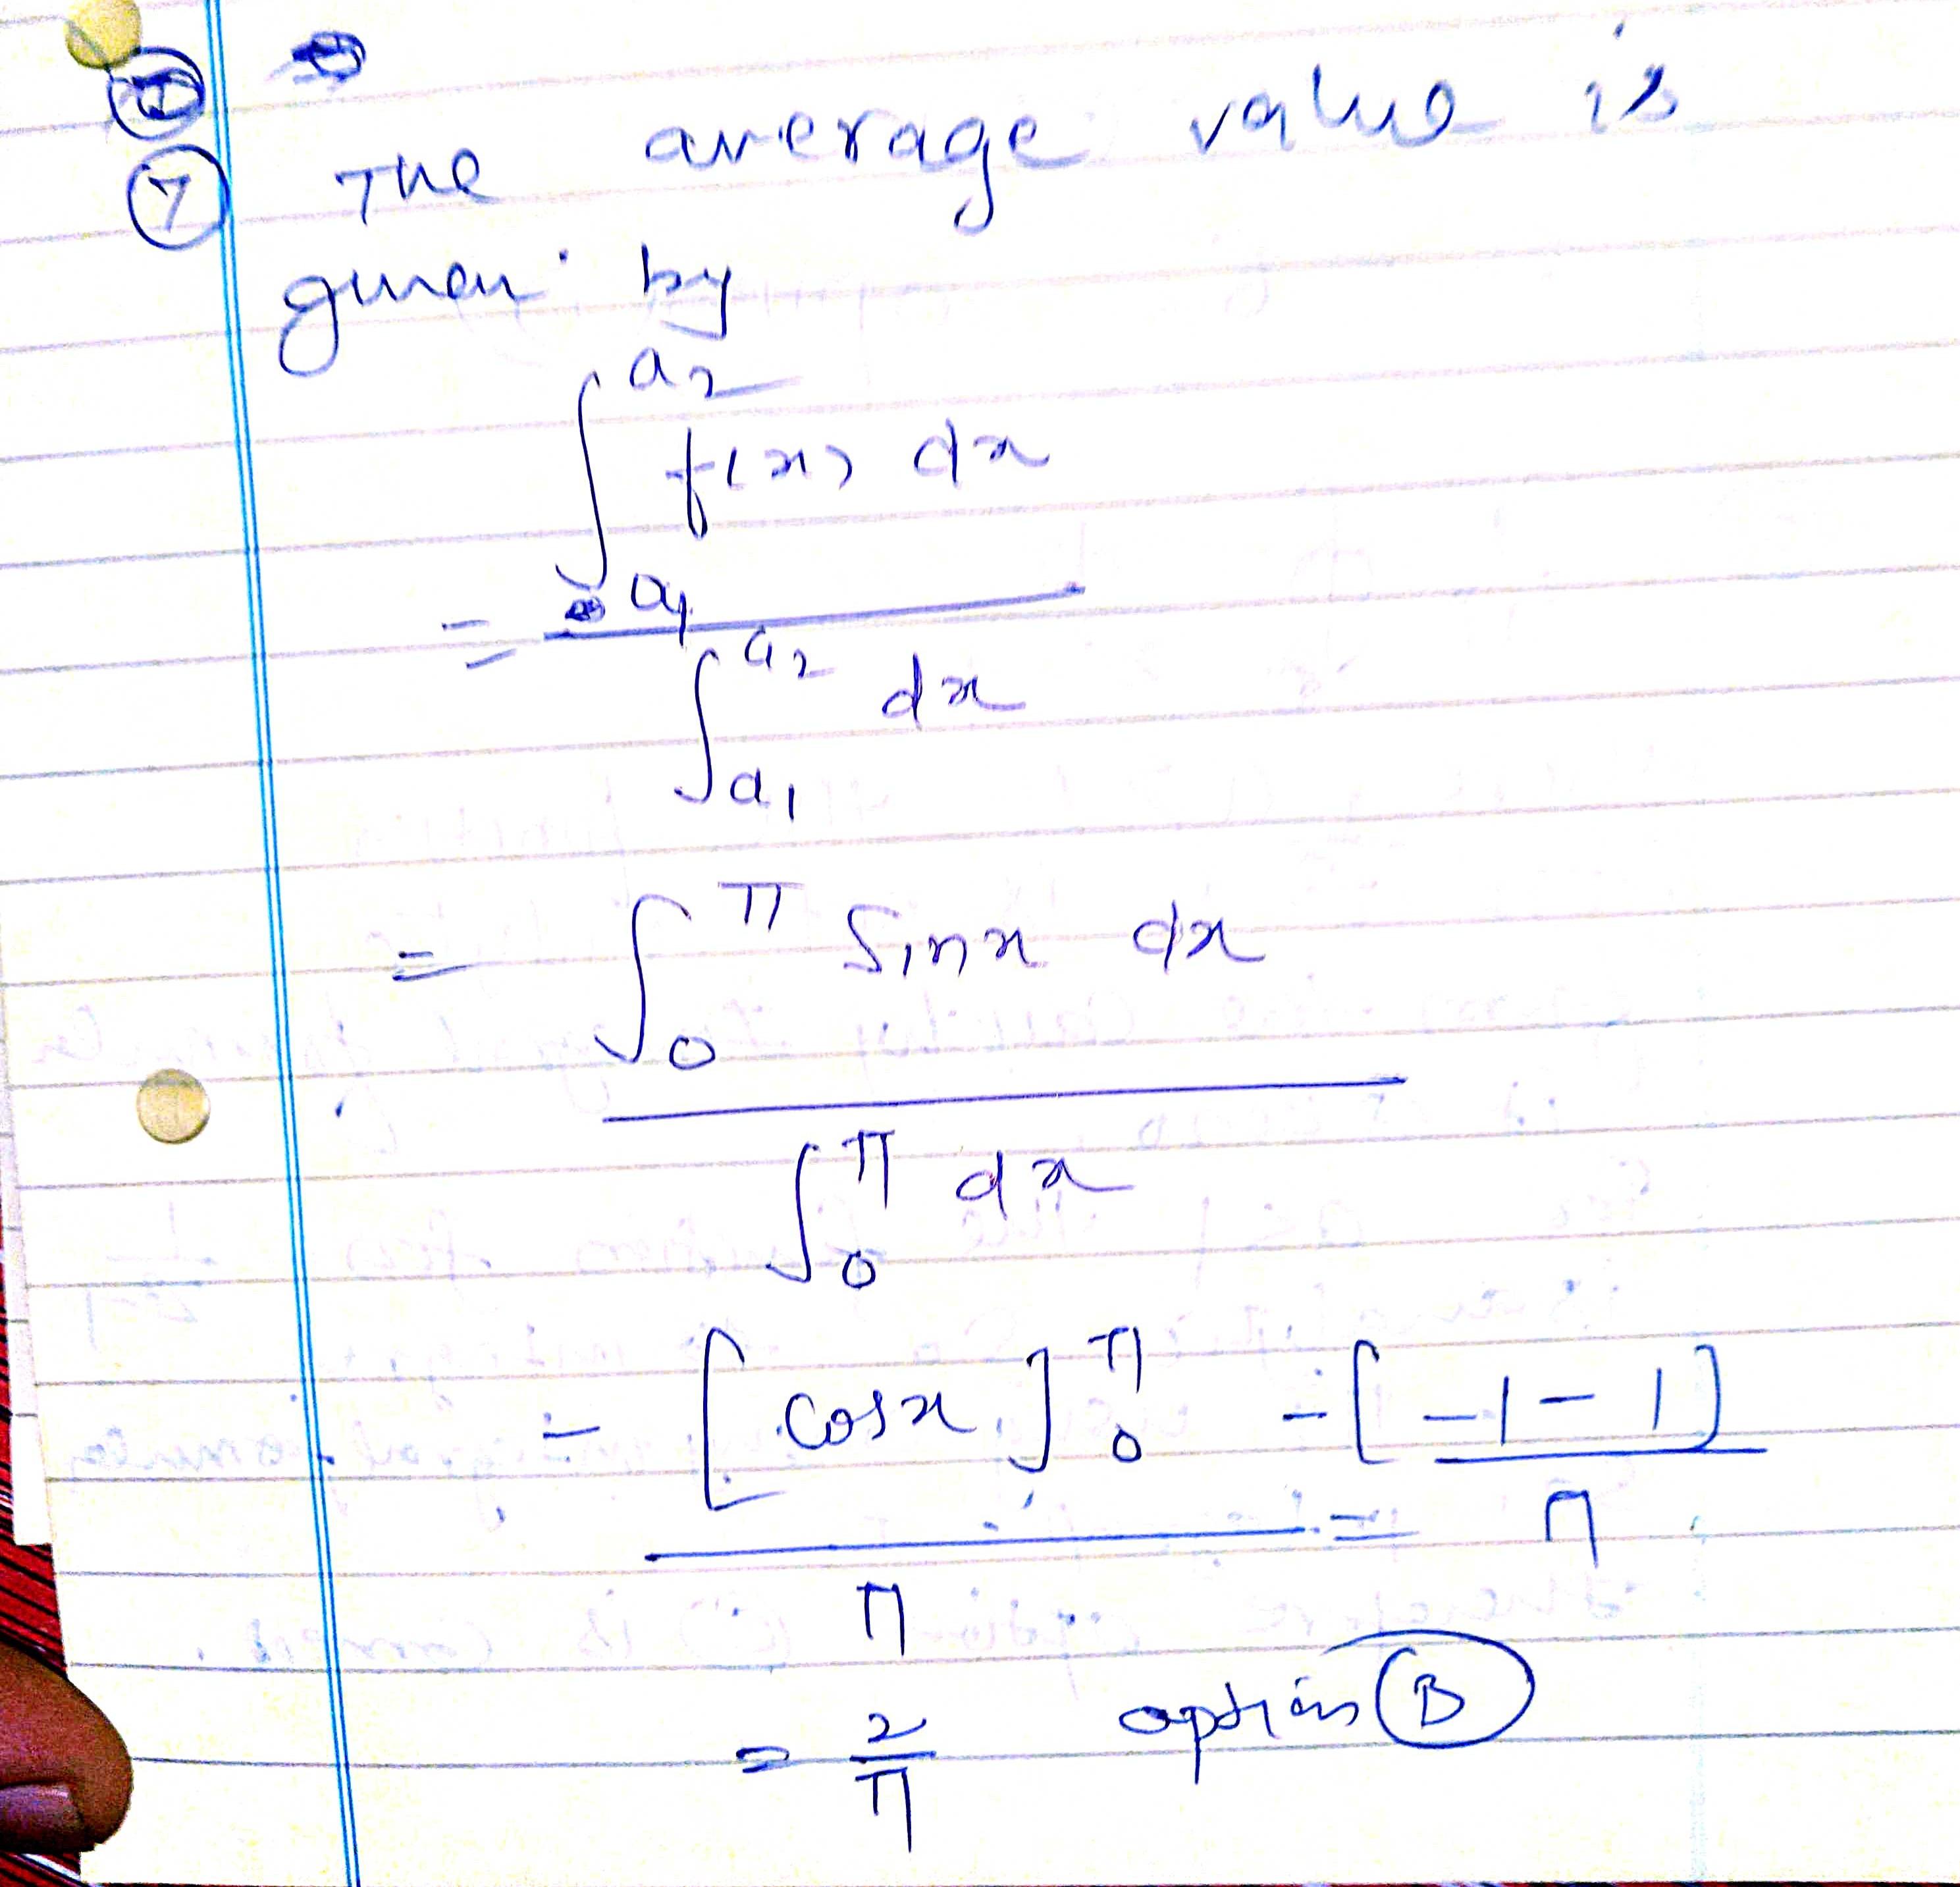 ⑦ The average value is
given by
= ∫_{a₁}^{a₂} f(x) dx / ∫_{a₁}^{a₂} dx
= ∫_{0}^{π} Sinx dx / ∫_{0}^{π} dx
- [cosx]_{0}^{π} / π = -[-1-1] / π
= 2/π option Ⓑ